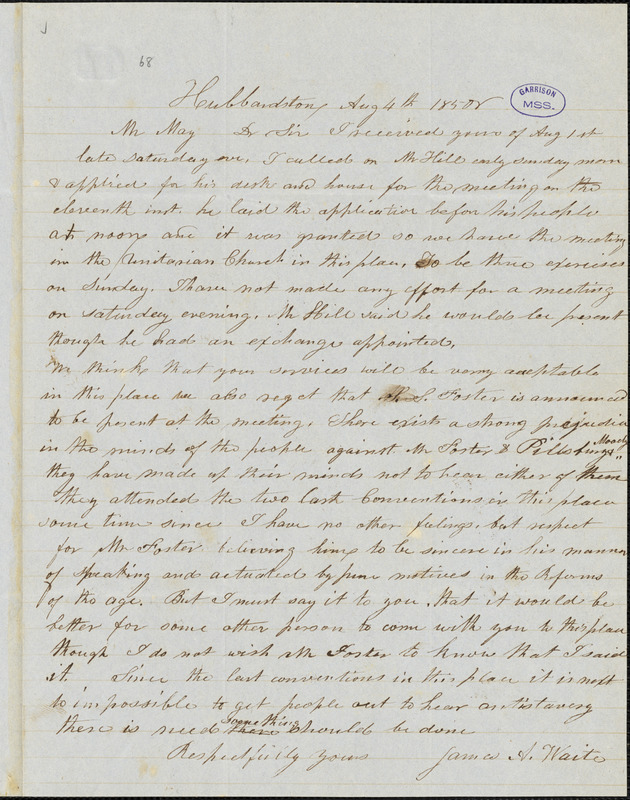 68
GARRISON
MSS.
Hubbardston, Aug 4th 1850
Mr May Dr Sir I received yours of Aug 1st
late saturday eve. I called on Mr Hill early sunday morn
& applied for his desk and house for the meeting on the
eleventh inst. he laid the application before his people
at noon and it was granted so we have the meeting
in the Unitarian Church in this place, To be three exercises
on Sunday. I have not made any effort for a meeting
on saturday evening. Mr Hill said he would be present
though he had an exchange appointed.
We think that your services will be very acceptable
in this place we also regret that S. Foster is announced
to be present at the meeting. There exists a strong prejudice
in the minds of the people against Mr Foster & Pillsbury
they have made up their minds not to hear either of them
They attended the two last Conventions in this place
some time since I have no other feelings but respect
for Mr Foster believing him to be sincere in his manner
of speaking and actuated by pure motives in the Reforms
of the age. But I must say it to you, that it would be
better for some other person to come with you to this place
though I do not wish Mr Foster to know that I said
it. Since the last conventions in this place it is next
to impossible to get people out to hear antislavery
there is need something should be done
Respectfully yours James A. Waite